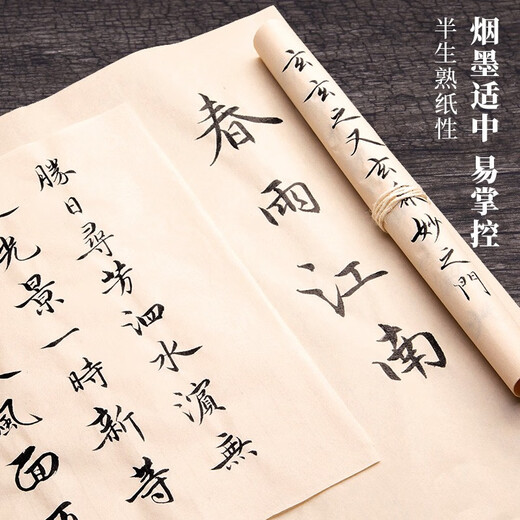 烟墨适中 易掌控
半生熟纸性
玄玄之又玄
妙之門
春雨江南
勝日尋芳泗水濱無
光景一時新等
風面